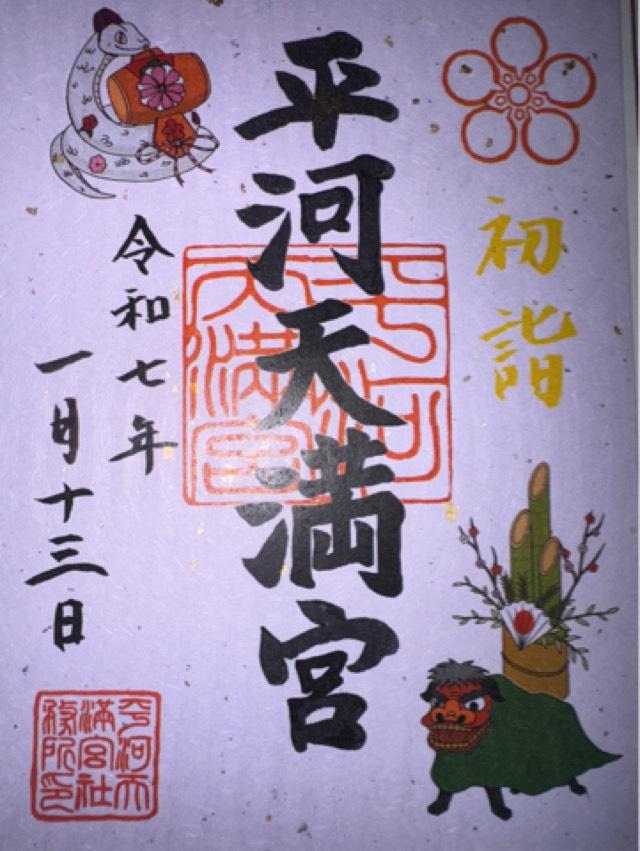 初詣
平河天満宮
令和七年
一月十三日
平河
天満宮
平河天
満宮社
務所印